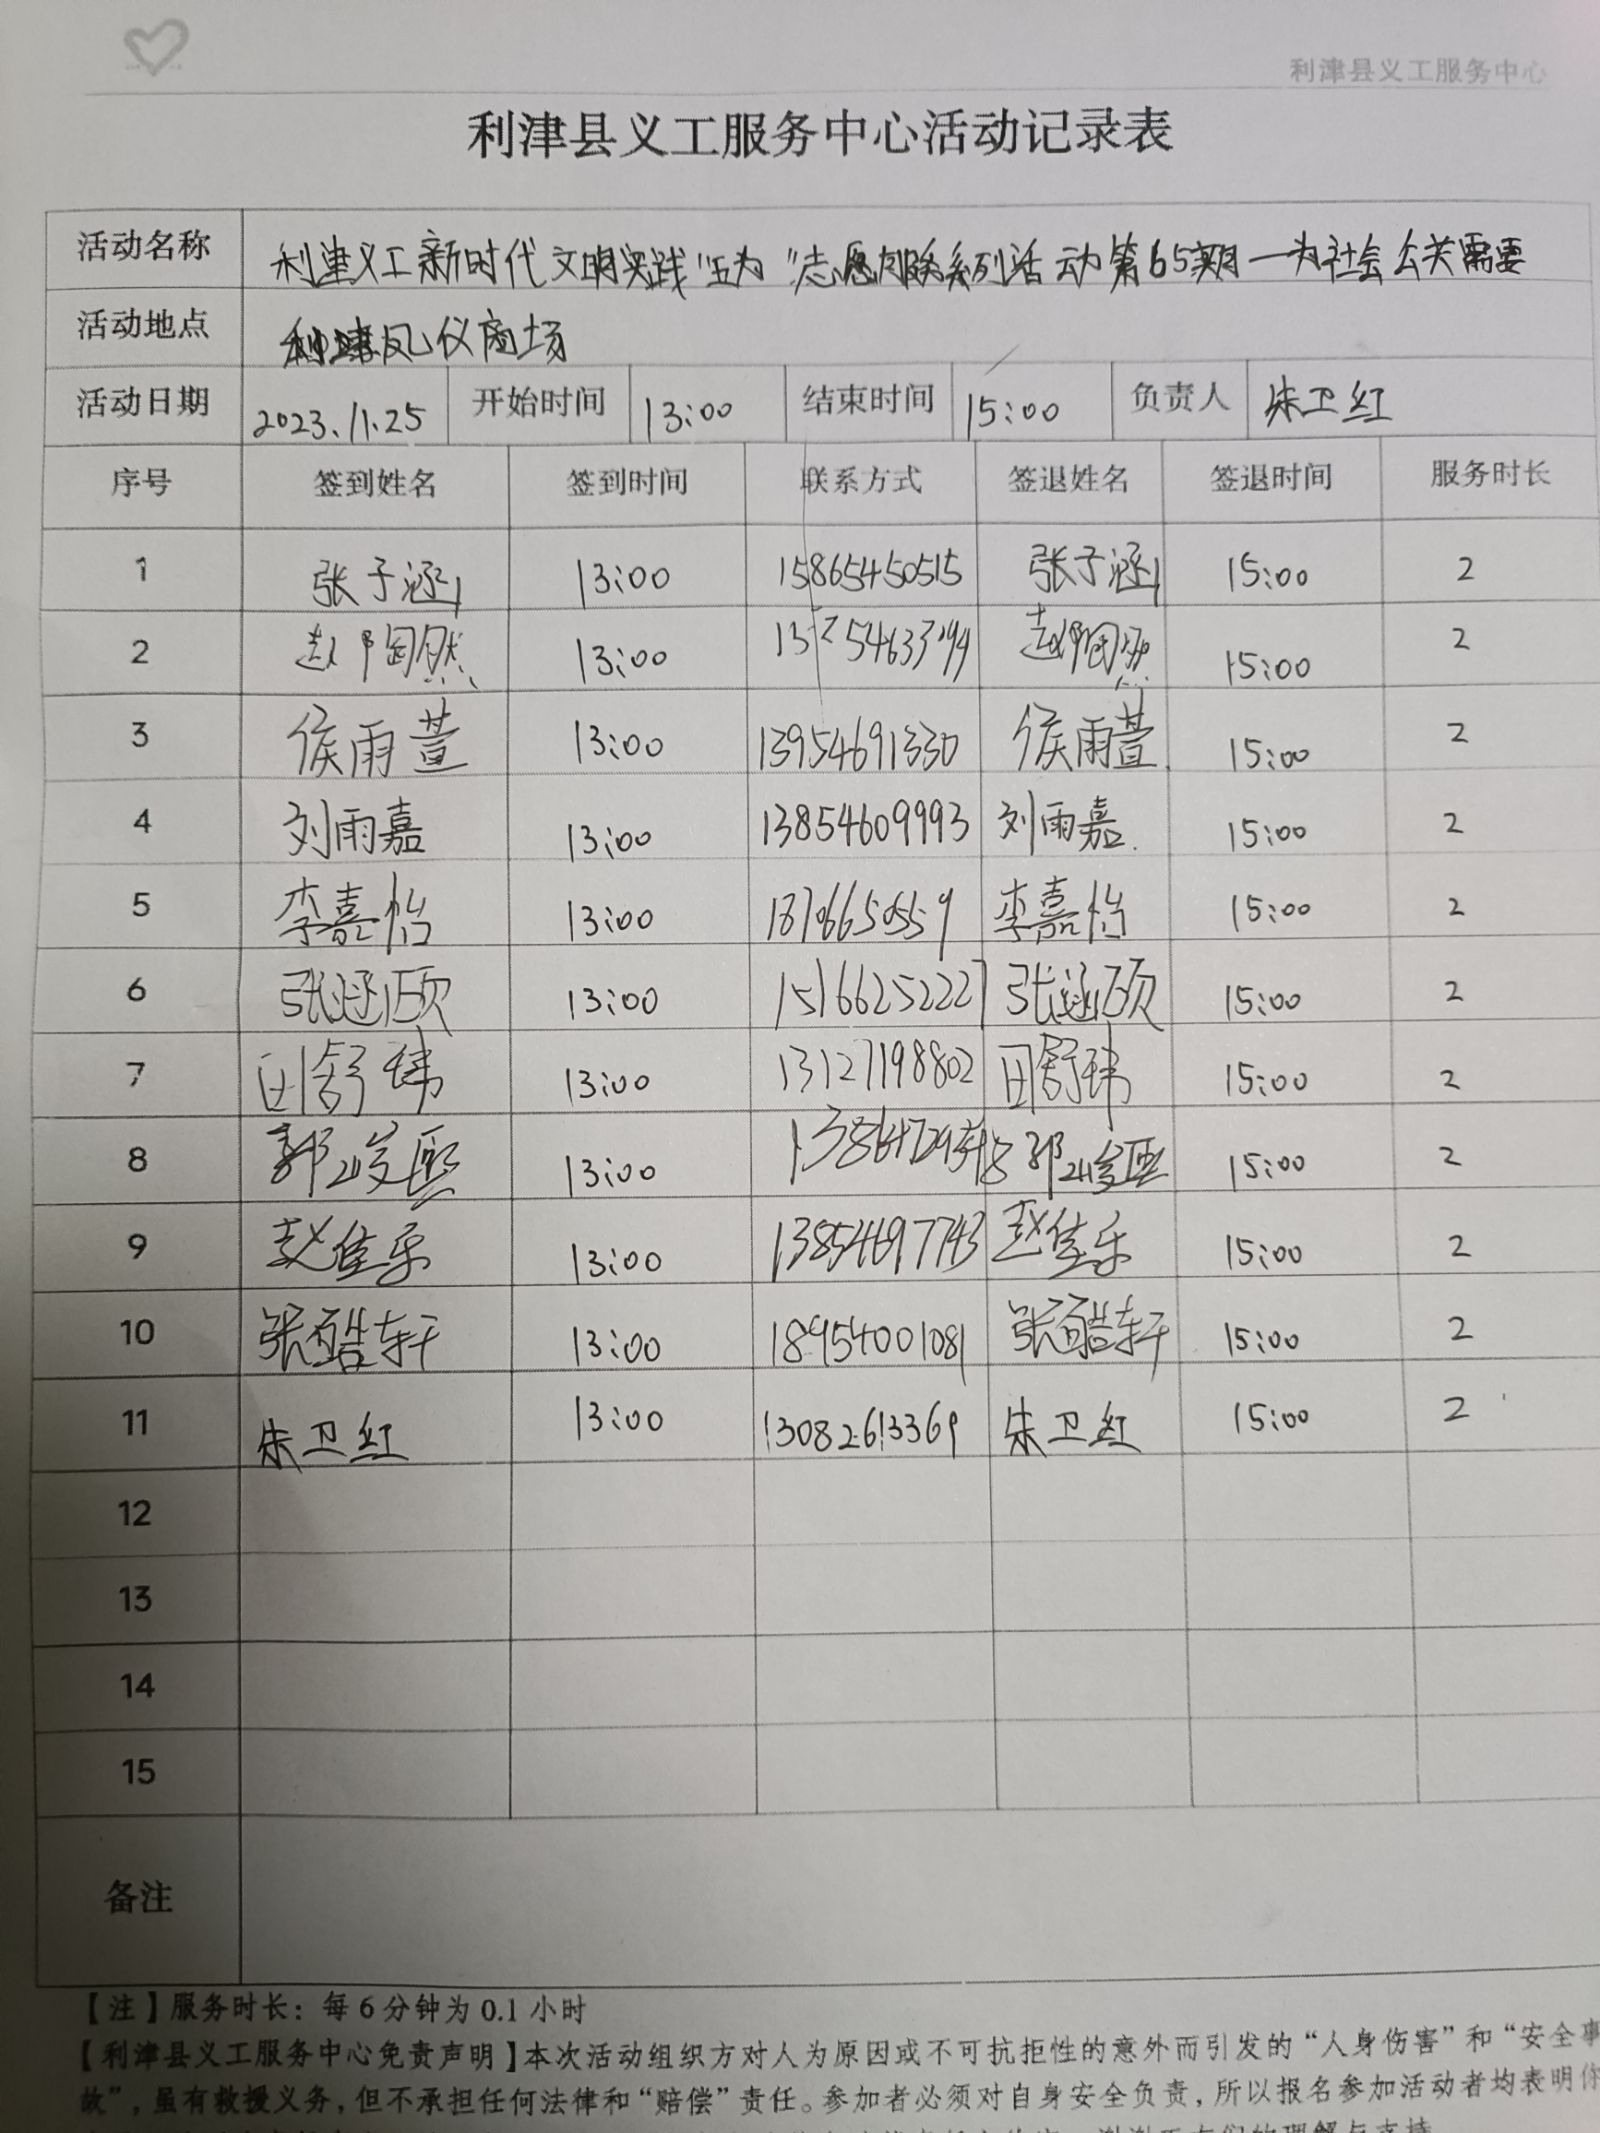 利津县义工服务中心
利津县义工服务中心活动记录表
活动名称 利津义工新时代文明实践"五为"志愿服务系列活动第65期—为社会公关需要
活动地点 利津凤仪商场
活动日期 2023.11.25 开始时间 13:00 结束时间 15:00 负责人 朱卫红
序号 签到姓名 签到时间 联系方式 签退姓名 签退时间 服务时长
1 张子涵 13:00 15865450515 张子涵 15:00 2
2 赵陶然 13:00 赵陶然 15:00 2
3 侯雨萱 13:00 13954691330 侯雨萱 15:00 2
4 刘雨嘉 13:00 13854609993 刘雨嘉 15:00 2
5 李嘉怡 13:00 18706650559 李嘉怡 15:00 2
6 张涵硕 13:00 15166252227 张涵硕 15:00 2
7 田舒玮 13:00 13127198802 田舒玮 15:00 2
8 郭峻熙 13:00 郭峻熙 15:00 2
9 赵佳乐 13:00 13854697743 赵佳乐 15:00 2
10 张皓轩 13:00 18954001081 张皓轩 15:00 2
11 朱卫红 13:00 13082613369 朱卫红 15:00 2
12
13
14
15
备注
【注】服务时长：每6分钟为0.1小时
【利津县义工服务中心免责声明】本次活动组织方对人为原因或不可抗拒性的意外而引发的“人身伤害”和“安全事
故”，虽有救援义务，但不承担任何法律和“赔偿”责任。参加者必须对自身安全负责，所以报名参加活动者均表明你